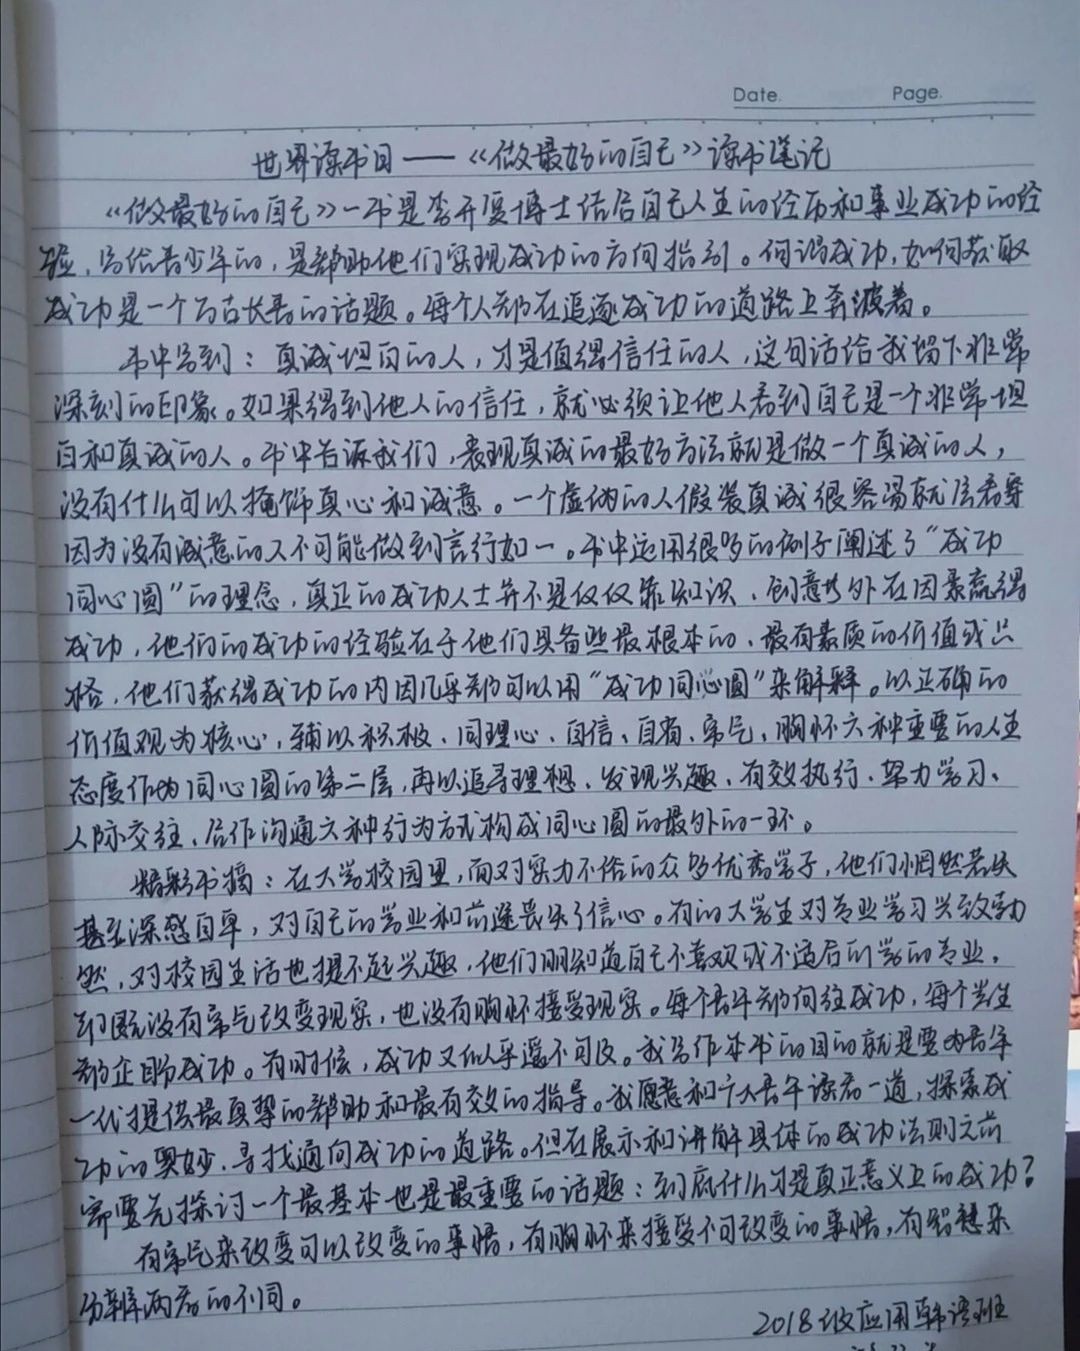 Date.
Page.
世界读书日——《做最好的自己》读书笔记
《做最好的自己》一书是李开复博士结合自己人生的经历和事业成功的经
验，写给青少年的，是帮助他们实现成功的方向指引。何谓成功，如何获取
成功是一个万古长青的话题。每个人都在追逐成功的道路上奔波着。
书中写到：真诚坦白的人，才是值得信任的人，这句话给我留下非常
深刻的印象。如果得到他人的信任，就必须让他人看到自己是一个非常坦
白和真诚的人。书中告诉我们，表现真诚的最好方法就是做一个真诚的人，
没有什么可以掩饰真心和诚意。一个虚伪的人假装真诚很容易就
因为没有诚意的人不可能做到言行如一。书中运用很多的例子阐述了“成功
同心圆”的理念，真正的成功人士并不是仅仅靠知识、创意等外在因素赢得
成功，他们的成功的经验在于他们具备些最根本的、最有素质的价值或品
格，他们获得成功的内因几乎都可以用“成功同心圆”来解释。以正确的
价值观为核心，辅以积极、同理心、自信、自省、勇气、胸怀六种重要的人生
态度作为同心圆的第二层，再以追寻理想、发现兴趣、有效执行、努力学习、
人际交往、合作沟通六种行为方式构成同心圆的最外的一环。
精彩书摘：在大学校园里，面对实力不俗的众多优秀学子，他们惘然若失
甚至深感自卑，对自己的学业和前途丧失了信心。有的大学生对专业学习兴致勃
然，对校园生活也提不起兴趣，他们明知道自己不喜欢或不适合所学的专业，
却既没有勇气改变现实，也没有胸怀接受现实。每个青年都向往成功，每个学生
都企盼成功。有时候，成功又似乎遥不可及。我写作本书的目的就是要为青年
一代提供最真挚的帮助和最有效的指导。我愿意和广大青年读者一道，探索成
功的奥妙，寻找通向成功的道路。但在展示和讲解具体的成功法则之前
需要先探讨一个最基本也是最重要的话题：到底什么才是真正意义上的成功？
有勇气来改变可以改变的事情，有胸怀来接受不可改变的事情，有智慧来
分辨两者的不同。
2018级应用韩语班